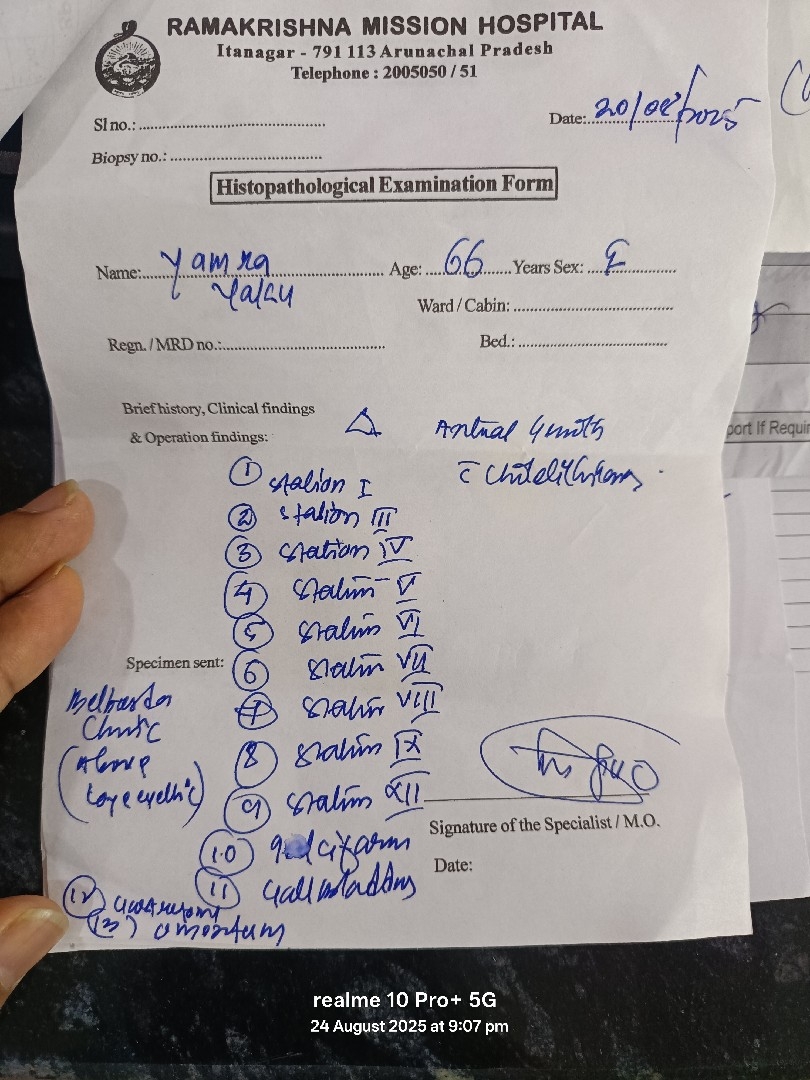 RAMAKRISHNA MISSION HOSPITAL
Itanagar - 791 113 Arunachal Pradesh
Telephone : 2005050 / 51
Sl no.:
Date: 20/08/2025
Biopsy no.:
Histopathological Examination Form
Name: Yamra Age: 66 Years Sex: F
Yalu
Ward / Cabin:
Regn. / MRD no.:
Bed.:
Brief history, Clinical findings
& Operation findings: Δ Antral
c̄
① Station I
② Station III
③ Station IV
④ Station V
⑤ Station VI
Specimen sent: ⑥ Station VII
⑦ Station VIII
⑧ Station IX
⑨ Station XII
Signature of the Specialist / M.O.
⑩
Date:
⑪ Gall bladder
⑫
⑬ Omentum
port If Requir
realme 10 Pro+ 5G
24 August 2025 at 9:07 pm